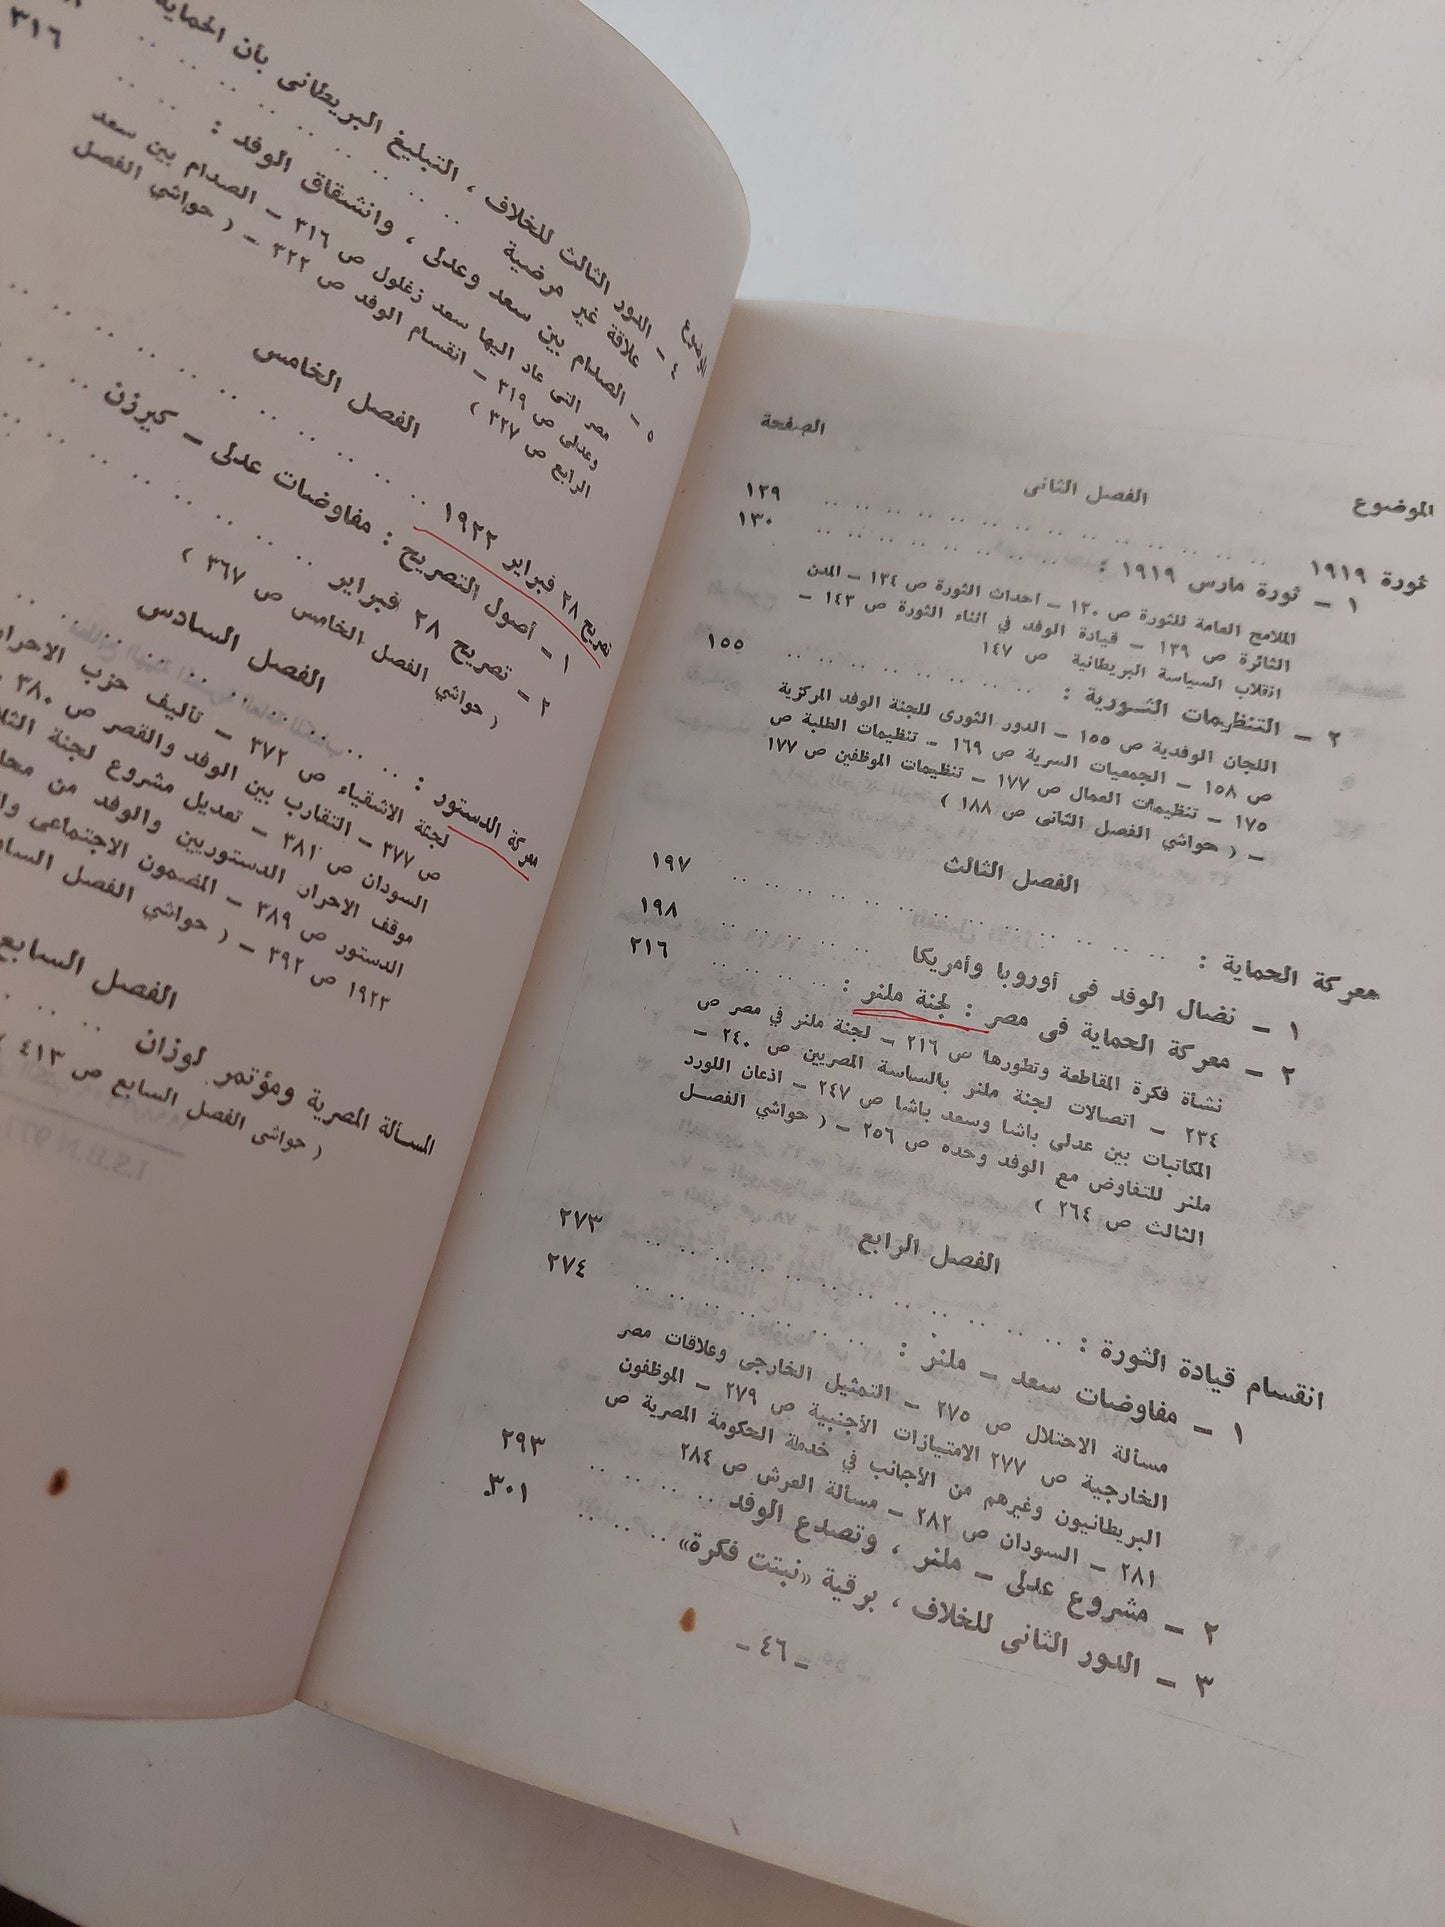 الصفحة
الموضوع
الفصل الثانى
ثورة ١٩١٩ .. .. .. .. .. .. .. .. .. .. ١٢٩
١ — ثورة مارس ١٩١٩ : .. .. .. .. .. .. .. ١٣٠
الملامح العامة للثورة ص ١٣٠ — احداث الثورة ص ١٣٤ — المدن
الثائرة ص ١٣٩ — قيادة الوفد في اثناء الثورة ص ١٤٣ —
انقلاب السياسة البريطانية ص ١٤٧
٢ — التنظيمات الثـورية : .. .. .. .. .. .. .. ١٥٥
اللجان الوفدية ص ١٥٥ — الدور الثورى للجنة الوفد المركزية
ص ١٥٨ — الجمعيات السرية ص ١٦٩ — تنظيمات الطلبة ص
١٧٥ — تنظيمات العمال ص ١٧٧ — تنظيمات الموظفين ص ١٧٧
— ( حواشي الفصل الثانى ص ١٨٨ )
الفصل الثالث
معركة الحماية : .. .. .. .. .. .. .. .. .. .. ١٩٧
١ — نضال الوفد فى أوروبا وأمريكا .. .. .. .. .. ١٩٨
٢ — معركة الحماية فى مصر : لجنة ملنر : .. .. .. .. ٢١٦
نشأة فكرة المقاطعة وتطورها ص ٢١٦ — لجنة ملنر في مصر ص
٢٣٤ — اتصالات لجنة ملنر بالساسة المصريين ص ٢٤٠ —
المكاتبات بين عدلى باشا وسعد باشا ص ٢٤٧ — اذعان اللورد
ملنر للتفاوض مع الوفد وحده ص ٢٥٦ — ( حواشي الفصـل
الثالث ص ٢٦٤ )
الفصل الرابع
انقسام قيادة الثورة : .. .. .. .. .. .. .. .. .. ٢٧٣
١ — مفاوضات سعد — ملنر : .. .. .. .. .. .. ٢٧٤
مسألة الاحتلال ص ٢٧٥ — التمثيل الخارجى وعلاقات مصر
الخارجية ص ٢٧٧ الامتيازات الأجنبية ص ٢٧٩ — الموظفون
البريطانيون وغيرهم من الأجانب في خدمة الحكومة المصرية ص
٢٨١ — السودان ص ٢٨٢ — مسألة العرش ص ٢٨٤
٢ — مشروع عدلى — ملنر ، وتصدع الوفد .. .. .. .. ٢٩٣
٣ — الدور الثانى للخلاف ، برقية «نبتت فكرة» .. .. .. ٣٠١
— ٤٦ —
الموضوع
٤ — الدور الثالث للخلاف ، التبليغ البريطانى بأن الحماية
علاقة غير مرضية .. .. .. .. .. ..
٥ — الصدام بين سعد وعدلى ، وانشقاق الوفد : .. .. ٣١٦
مصر التى عاد اليها سعد زغلول ص ٣١٦ — الصدام بين سعد
وعدلى ص ٣١٩ — انقسام الوفد ص ٣٢٢ — ( حواشي الفصل
الرابع ص ٣٢٧ )
الفصل الخامس
تصريح ٢٨ فبراير ١٩٢٢ .. .. .. .. .. .. ..
١ — أصول التصريح : مفاوضات عدلى — كيرزن .. ..
٢ — تصريح ٢٨ فبراير .. .. .. .. .. ..
( حواشي الفصل الخامس ص ٣٦٧ )
الفصل السادس
معركة الدستور : .. .. .. .. .. .. ..
لجنة الاشقياء ص ٣٧٢ — تأليف حزب الاحرار
ص ٣٧٧ — التقارب بين الوفد والقصر ص ٣٨٠
السودان ص ٣٨١ — تعديل مشروع لجنة
موقف الاحرار الدستوريين والوفد من
الدستور ص ٣٨٩ — المضمون الاجتماعى
١٩٢٣ ص ٣٩٢ — ( حواشي الفصل
الفصل السابع
المسألة المصرية ومؤتمر لوزان .. ..
( حواشى الفصل السابع ص ٤١٣ )